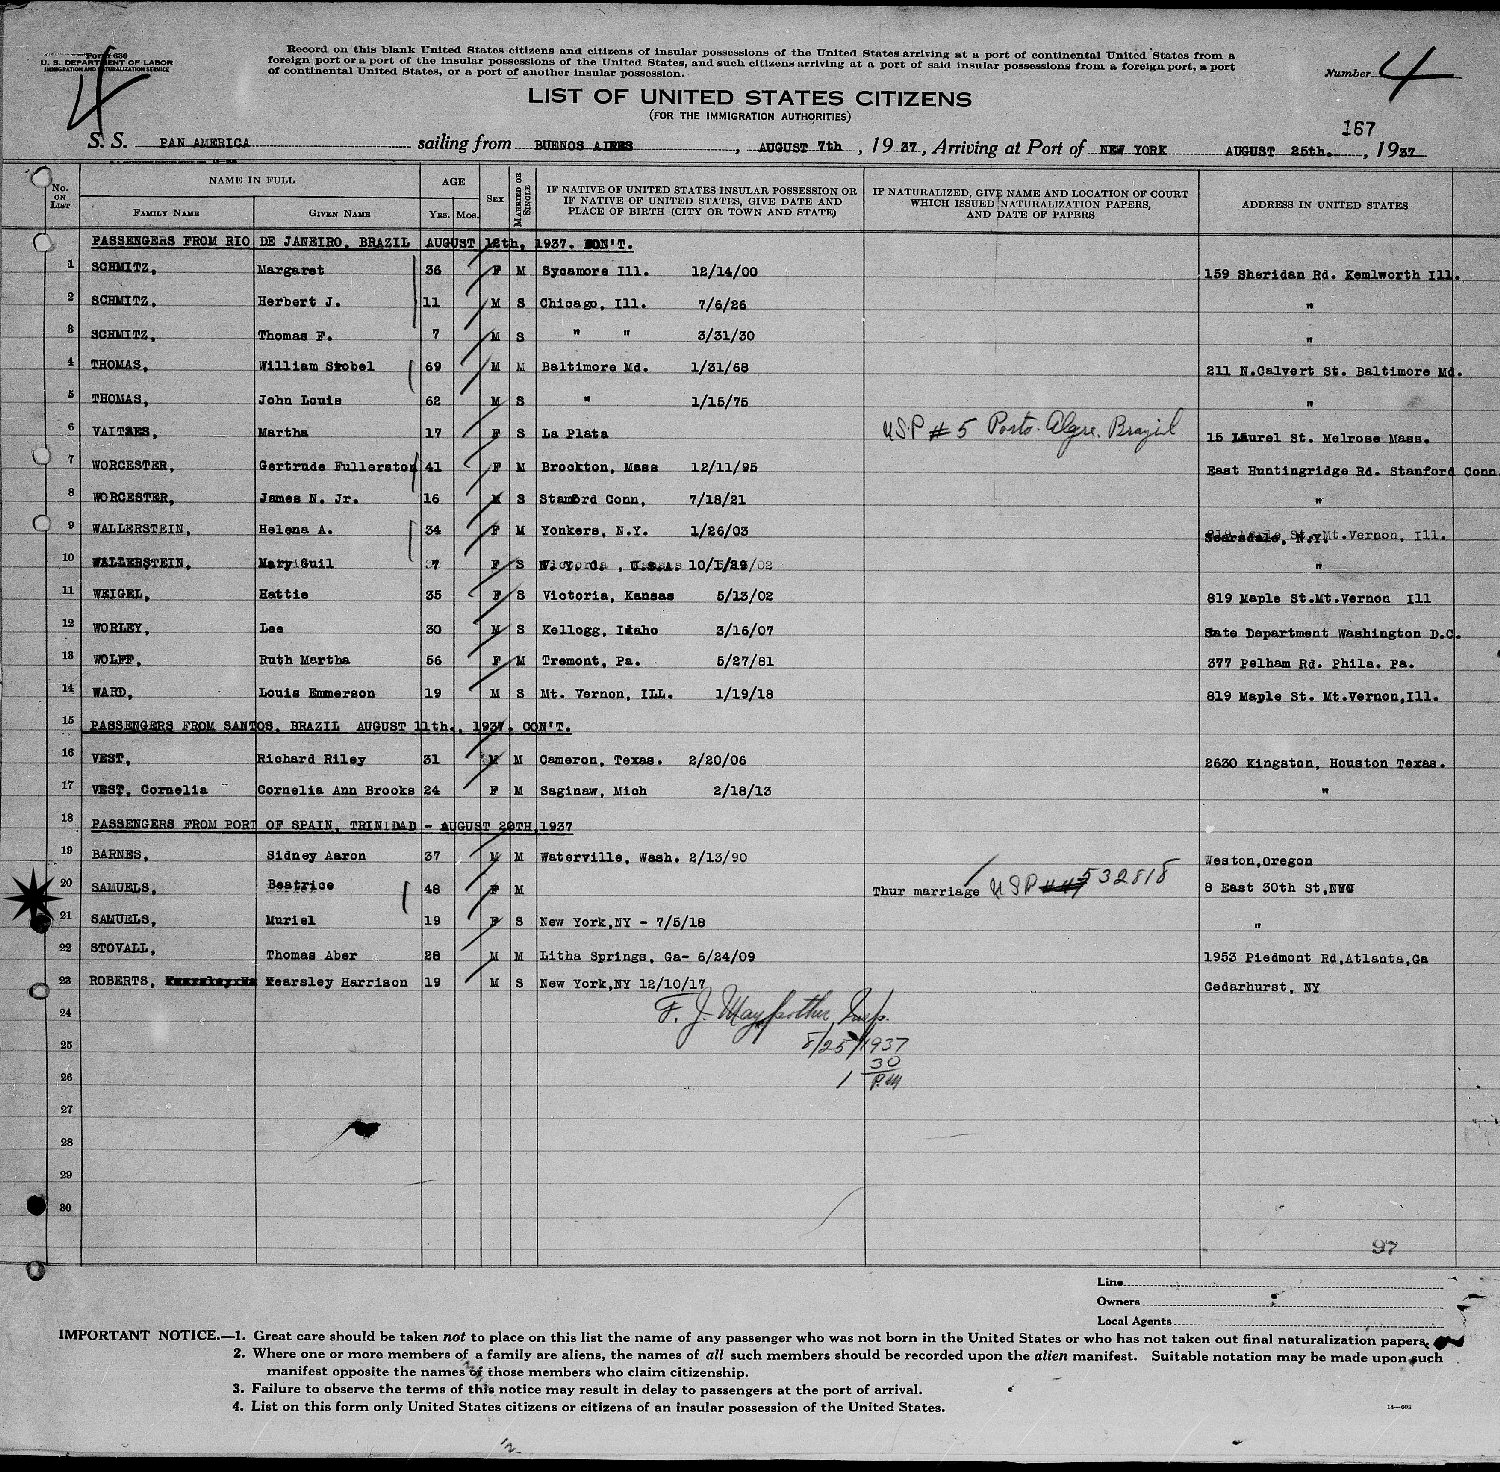 Form 686
U. S. DEPARTMENT OF LABOR
IMMIGRATION AND NATURALIZATION SERVICE
4
Record on this blank United States citizens and citizens of insular possessions of the United States arriving at a port of continental United States from a
foreign port or a port of the insular possessions of the United States, and such citizens arriving at a port of said insular possessions from a foreign port, a port
of continental United States, or a port of another insular possession.
Number 4
LIST OF UNITED STATES CITIZENS
(FOR THE IMMIGRATION AUTHORITIES)
167
S. S. PAN AMERICA sailing from BUENOS AIRES, AUGUST 7th, 19 37, Arriving at Port of NEW YORK AUGUST 25th., 1937
No. ON LIST NAME IN FULL AGE SEX MARRIED OR SINGLE IF NATIVE OF UNITED STATES INSULAR POSSESSION OR IF NATIVE OF UNITED STATES, GIVE DATE AND PLACE OF BIRTH (CITY OR TOWN AND STATE) IF NATURALIZED, GIVE NAME AND LOCATION OF COURT WHICH ISSUED NATURALIZATION PAPERS, AND DATE OF PAPERS ADDRESS IN UNITED STATES
FAMILY NAME GIVEN NAME YRS. MOS.
PASSENGERS FROM RIO DE JANEIRO, BRAZIL AUGUST 12th, 1937. CON'T.
1 SCHMITZ, Margaret 36 F M Sycamore Ill. 12/14/00 159 Sheridan Rd. Kemlworth Ill.
2 SCHMITZ, Herbert J. 11 M S Chicago, Ill. 7/6/26 "
3 SCHMITZ, Thomas F. 7 M S " " 3/31/30 "
4 THOMAS, William Strobel 69 M M Baltimore Md. 1/31/68 211 N.Calvert St. Baltimore Md.
5 THOMAS, John Louis 62 M S " 1/15/75 "
6 VAITSES, Martha 17 F S La Plata USP # 5 Porto. Algre. Brazil 15 Laurel St. Melrose Mass.
7 WORCESTER, Gertrude Fullerston 41 F M Brookton, Mass 12/11/95 East Huntingridge Rd. Stanford Conn
8 WORCESTER, James N. Jr. 16 M S Stamford Conn, 7/18/21 "
9 WALLERSTEIN, Helena A. 34 F M Yonkers, N.Y. 1/26/03 Scarsdale, N.Y. Mt.Vernon, Ill.
10 WALLERSTEIN, Mary Guil 7 F S "
11 WEIGEL, Hattie 35 F S Victoria, Kansas 5/13/02 819 Maple St.Mt.Vernon Ill
12 WORLEY, Lee 30 M S Kellogg, Idaho 3/16/07 Sate Department Washington D.C.
13 WOLFF, Ruth Martha 56 F M Tremont, Pa. 5/27/81 377 Pelham Rd. Phila. Pa.
14 WARD, Louis Emmerson 19 M S Mt. Vernon, ILL. 1/19/18 819 Maple St. Mt.Vernon,Ill.
15 PASSENGERS FROM SANTOS, BRAZIL AUGUST 11th., 1937. CON'T.
16 VEST, Richard Riley 31 M M Cameron, Texas. 2/20/06 2630 Kingston, Houston Texas.
17 VEST, Cornelia Cornelia Ann Brooks 24 F M Saginaw, Mich 2/18/13 "
18 PASSENGERS FROM PORT OF SPAIN, TRINIDAD - AUGUST 20TH,1937
19 BARNES, Sidney Aaron 37 M M Waterville, Wash. 2/13/90 Weston,Oregon
20 SAMUELS, Beatrice 48 F M Thur marriage USP 532818 8 East 30th St,NYC
21 SAMUELS, Muriel 19 F S New York,NY - 7/5/18 "
22 STOVALL, Thomas Aber 28 M M Litha Springs, Ga- 6/24/09 1953 Piedmont Rd,Atlanta,Ga
23 ROBERTS, Kearsley Harrison 19 M S New York,NY 12/10/17 Cedarhurst, NY
24 F. J. Mayfarther Insp.
25 8/25/1937
26 1 30 P.M
27
28
29
30
97
Line
Owners
Local Agents
IMPORTANT NOTICE.—1. Great care should be taken not to place on this list the name of any passenger who was not born in the United States or who has not taken out final naturalization papers.
2. Where one or more members of a family are aliens, the names of all such members should be recorded upon the alien manifest. Suitable notation may be made upon such
manifest opposite the names of those members who claim citizenship.
3. Failure to observe the terms of this notice may result in delay to passengers at the port of arrival.
4. List on this form only United States citizens or citizens of an insular possession of the United States.